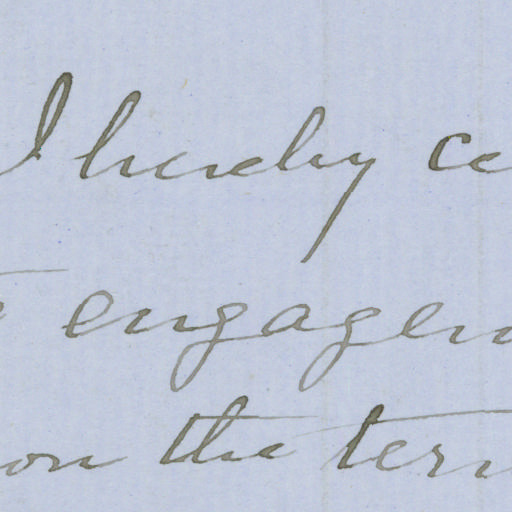 I hereby ce
engagem
on the term